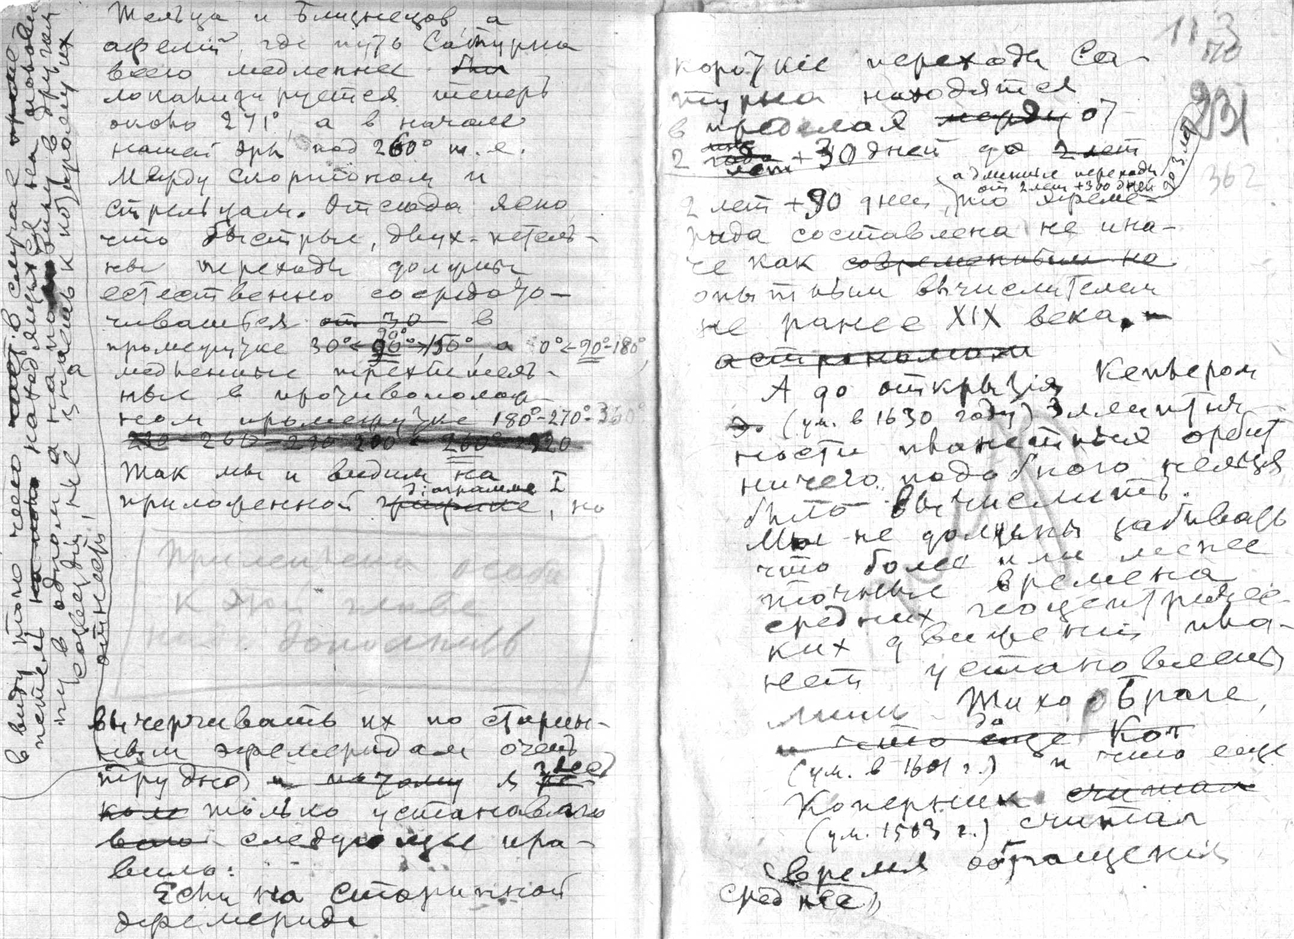 Тельца и Близнецов, а
афелий, где путь Сатурна
всего медленнее
локализируется теперь
около 271°, а в начале
нашей эры под 260° т.е.
между Скорпионом и
Стрельцом. Отсюда ясно
что быстрые, двух-петель-
ные переходы должны
естественно сосредото-
чиваться от 30 в
промежутке 0°<90°-180°,
медленные трехпетель-
ные в противополож-
ном промежутке 180°-270°-360°
Так мы и видим на
приложенной диаграмме I, но
Примечания
к этой главе
дополнить
вычерчивать их по старин-
ным эфемеридам очень
трудно и потому я здесь
только устанавливаю
следующее пра-
вило:
Если на старинной
эфемериде
в виду того чего в случае
петель находящихся на половин
ну в одном а на половину в другом
созвездии, не знаешь к которому их
отнести
11 3
231
362
короткие переходы Са-
турна находятся
в пределах между от
2 лет +30 дней до 2 лет
а длинные переходы
от 2 лет +300 дней до 3 лет
2 лет +90 дней, то эфеме-
рида составлена не ина-
че как современным но
опытным вычислителем
не ранее XIX века.
астрономом
А до открытия Кеплером
(ум. в 1630 году) эллиптич
ности планетных орбит
ничего подобного нельзя
было вычислить.
Мы не должны забывать
что более или менее
точные времена
средних геоцентричес-
ких движений пла-
нет установлены
лишь Тихо Браге,
(ум. в 1601 г.) и что еще
Коперник считал
(ум. 1543 г.) считал
время обращения
среднее